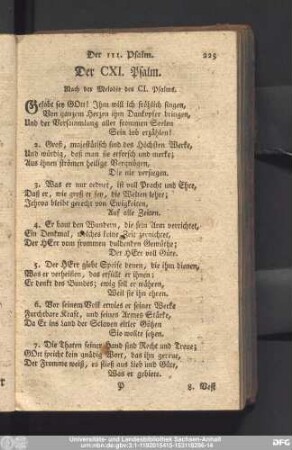 Der 111. Psalm. 225
Der CXI. Psalm.
Nach der Melodie des CL. Psalms.
Gelobt sey GOtt! Ihm will ich fröhlich singen,
Von ganzem Herzen ihm Dankopfer bringen,
Und der Versammlung aller frommen Seelen
Sein Lob erzählen!
2. Groß, majestätisch sind des Höchsten Werke,
Und würdig, daß man sie erforsch und merke;
Aus ihnen strömen heilige Vergnügen,
Die nie versiegen.
3. Was er nur ordnet, ist voll Pracht und Ehre,
Daß er, wie groß er sey, die Welten lehre;
Jehova bleibt gerecht von Ewigkeiten,
Auf alle Zeiten.
4. Er baut den Wundern, die sein Arm verrichtet,
Ein Denkmaal, welches keine Zeit zernichtet,
Der HErr vom frommen duldenden Gemüthe;
Der HErr voll Güte.
5. Der HErr giebt Speise denen, die ihm dienen,
Was er verheissen, das erfüllt er ihnen;
Er denkt des Bundes; ewig soll er nähren,
Weil sie ihn ehren.
6. Vor seinem Volk erwies er seiner Werke
Furchtbare Kraft, und seines Armes Stärke,
Da Er ins Land der Sclaven eitler Götzen
Sie wollte setzen.
7. Die Thaten seiner Hand sind Recht und Treue;
GOtt spricht kein gnädig Wort, das ihn gereue,
Der Fromme weiß, es fließ aus Lieb und Güte,
Was er gebiete.
P 8. Vest
Universitäts- und Landesbibliothek Sachsen-Anhalt
DFG